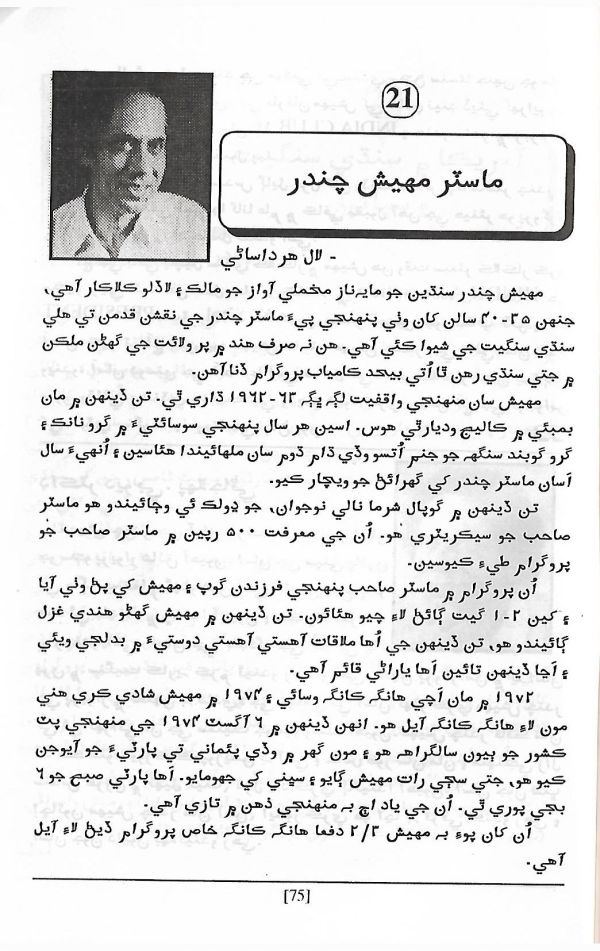 21
ماسٽر مهيش چندر
- لال هرداساڻي
مهيش چندر سنڌين جو مايه‌ناز مخملي آواز جو مالڪ ۽ لاڏلو ڪلاڪار آهي،
جنهن ۳۵-۴۰ سالن کان وٺي پنهنجي پيءُ ماسٽر چندر جي نقشن قدمن تي هلي
سنڌي سنگيت جي شيوا ڪئي آهي. هن نہ صرف هند ۾ پر ولائت جي گهڻن ملڪن
۾ جتي سنڌي رهن ٿا اُتي بيحد ڪامياب پروگرام ڏنا آهن.
مهيش سان منهنجي واقفيت لڳہ ڀڳہ ۶۳-۱۹۶۲ ڌاري ٿي. تن ڏينهن ۾ مان
بمبئي ۾ ڪاليج وديارٿي هوس. اسين هر سال پنهنجي سوسائٽيءَ ۾ گرو نانڪ ۽
گرو گوبند سنگهہ جو جنم اُتسو وڏي ڌام ڌوم سان ملهائيندا هئاسين ۽ اُنهيءَ سال
اَسان ماسٽر چندر کي گهرائڻ جو ويچار ڪيو.
تن ڏينهن ۾ گوپال شرما نالي نوجوان، جو ڍولڪ ئي وڄائيندو هو ماسٽر
صاحب جو سيڪريٽري هو. اُن جي معرفت ۵۰۰ رپين ۾ ماسٽر صاحب جو
پروگرام طيءِ ڪيوسين.
اُن پروگرام ۾ ماسٽر صاحب پنهنجي فرزندن گوپ ۽ مهيش کي پڻ وٺي آيا
۽ کين ۲-۱ گيت ڳائڻ لاءِ چيو هئائون. تن ڏينهن ۾ مهيش گهڻو هندي غزل
ڳائيندو هو، تن ڏينهن جي اُها ملاقات آهستي آهستي دوستيءَ ۾ بدلجي ويئي
۽ اَڄا ڏينهن تائين اَها ياراڻي قائم آهي.
۱۹۷۲ ۾ مان اَچي هانگہ ڪانگہ وسائي ۽ ۱۹۷۴ ۾ مهيش شادي ڪري هني
مون لاءِ هانگہ ڪانگہ آيل هو. انهن ڏينهن ۾ ۶ آگسٽ ۱۹۷۴ جي منهنجي پٽ
ڪشور جو ٻيون سالگراهہ هو ۽ مون گهر ۾ وڏي پئماني تي پارٽيءَ جو آيوجن
ڪيو هو، جتي سڄي رات مهيش ڳايو ۽ سڀني کي جهومايو. اَها پارٽي صبح جو ۶
بجي پوري ٿي. اُن جي ياد اڄ بہ منهنجي ذهن ۾ تازي آهي.
اُن کان پوءِ بہ مهيش ۲/۳ دفعا هانگہ ڪانگہ خاص پروگرام ڏيڻ لاءِ آيل
آهي.
[75]